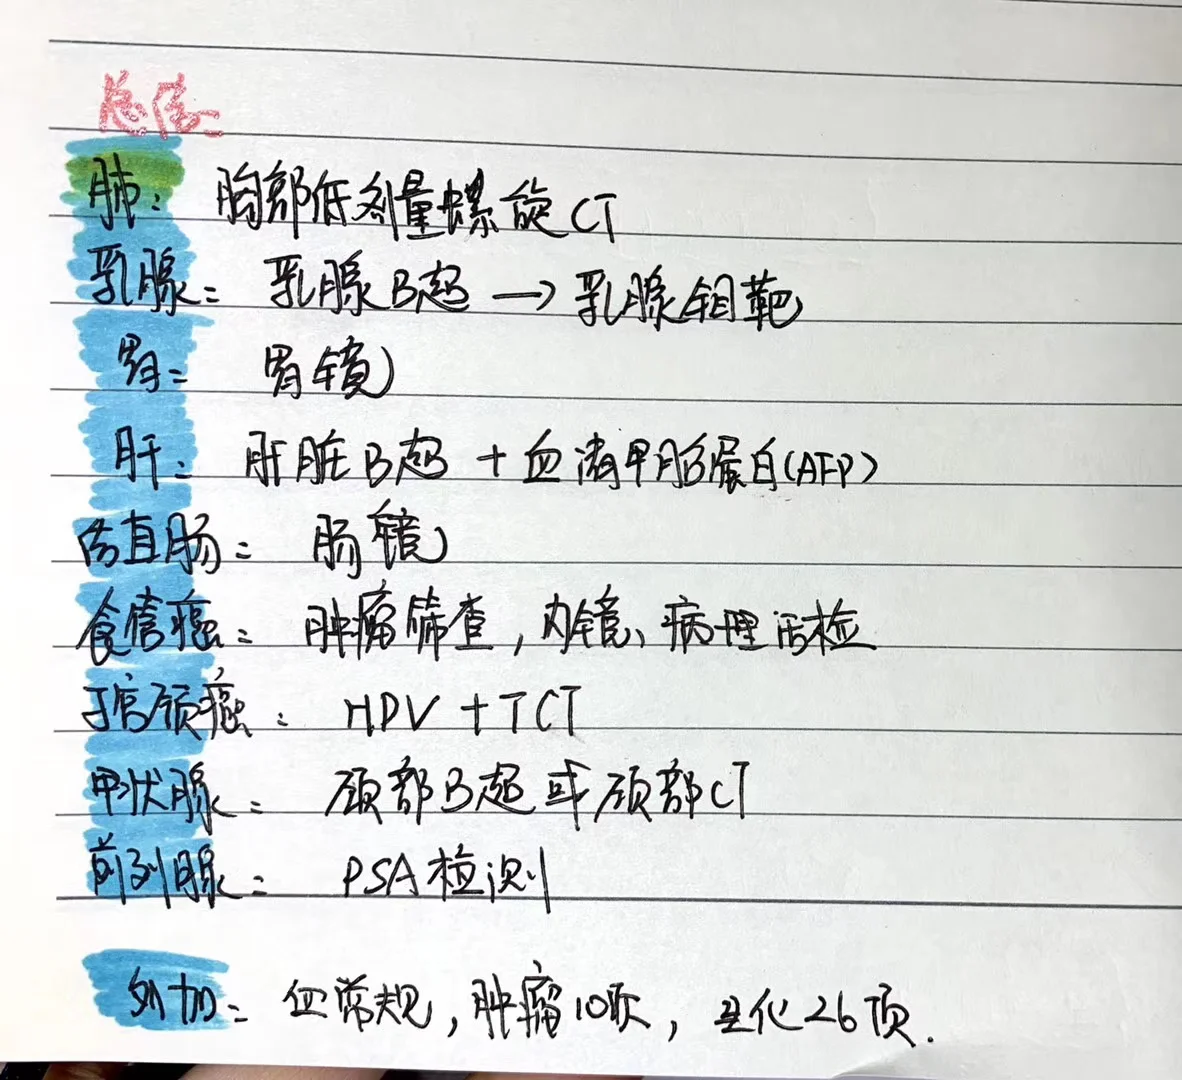 总结:
肺: 胸部低剂量螺旋CT
乳腺: 乳腺B超 → 乳腺钼靶
胃: 胃镜
肝: 肝脏B超 + 血清甲胎蛋白(AFP)
结直肠: 肠镜
食管癌: 肿瘤筛查,内镜、病理活检
子宫颈癌: HPV + TCT
甲状腺: 颈部B超或颈部CT
前列腺: PSA检测
外加: 血常规,肿瘤10项,生化26项.